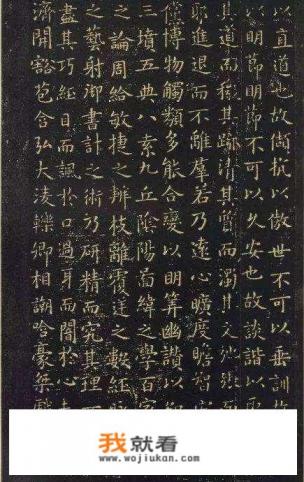 以直道也故頡抗以傲世不可以垂訓
以明節明節不可以久安也故談諧以取
其道而穢其跡清其質而濁其文弛張而
耶進退而不離羣若乃遠心曠度贍智
儻博物觸類多能合變以明筭幽讚以知
三墳五典八索九丘陰陽啚緯之學百家
之論周給敏捷之辨枝離覆逆之數經脉
之藝射御書計之術乃研精而究其理不
盡其巧經目而諷於口過耳而闇於心夫
濟開豁苞含弘大淩轢卿相謿哈豪桀戲
我就看
www.wojiukan.com